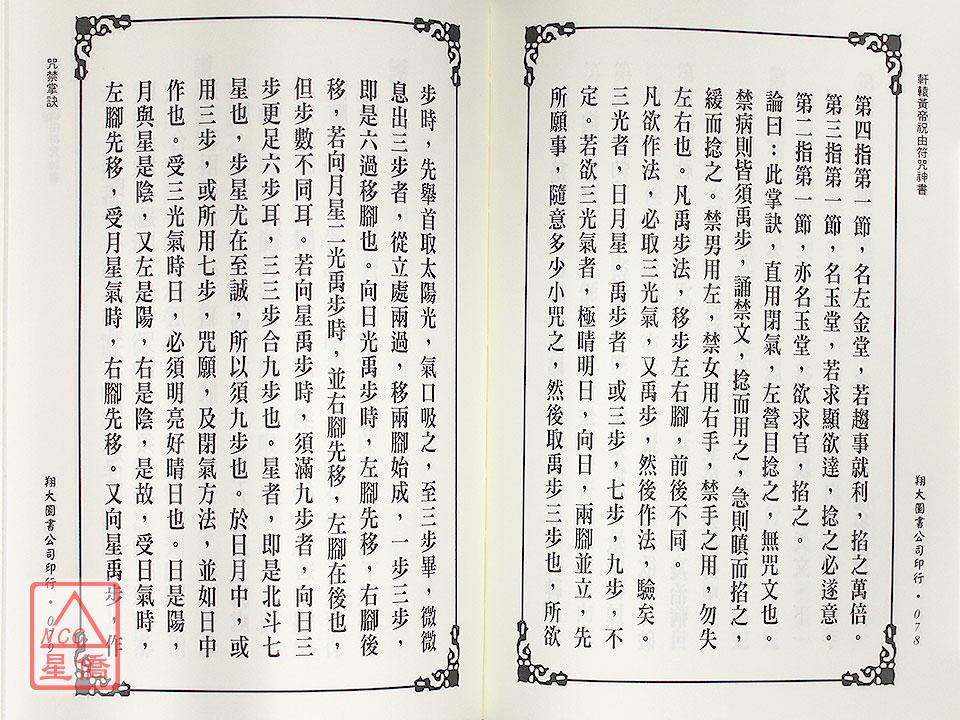 軒轅黃帝祝由符咒神書
第四指第一節，名左金堂，若趨事就利，掐之萬倍。
第三指第一節，名玉堂，若求顯欲達，捻之必遂意。
第二指第一節，亦名玉堂，欲求官，掐之。
論曰：此掌訣，直用閉氣，左營目捻之，無咒文也。
禁病則皆須禹步，誦禁文，捻而用之，急則瞋而掐之，
緩而捻之。禁男用左，禁女用右手，禁手之用，勿失
左右也。凡禹步法，移步左右腳，前後不同。
凡欲作法，必取三光氣，又禹步，然後作法，驗矣。
三光者，日月星。禹步者，或三步，七步，九步，不
定。若欲三光氣者，極晴明日，向日，兩腳並立，先
所願事，隨意多少小咒之，然後取禹步三步也，所欲
翔大圖書公司印行・078
步時，先舉首取太陽光，氣口吸之，至三步畢，微微
息出三步者，從立處兩過，移兩腳始成，一步三步，
即是六過移腳也。向日光禹步時，左腳先移，右腳後
移，若向月星二光禹步時，並右腳先移，左腳在後也，
但步數不同耳。若向星禹步時，須滿九步者，向日三
步更足六步耳，三三步合九步也。星者，即是北斗七
星也，步星尤在至誠，所以須九步也。於日月中，或
用三步，或所用七步，咒願，及閉氣方法，並如日中
作也。受三光氣時日，必須明亮好晴日也。日是陽，
月與星是陰，又左是陽，右是陰，是故，受日氣時，
左腳先移，受月星氣時，右腳先移。又向星禹步，作
咒禁掌訣
翔大圖書公司印行・079
NCC
星僑